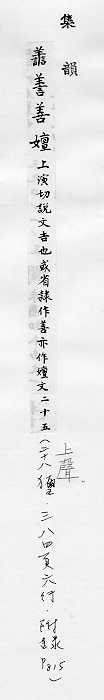 集韻
譱善嬗上演切說文吉也或省隸作善亦作嬗文二十五(二十八獮.三八四頁六行.附錄P815)
上聲